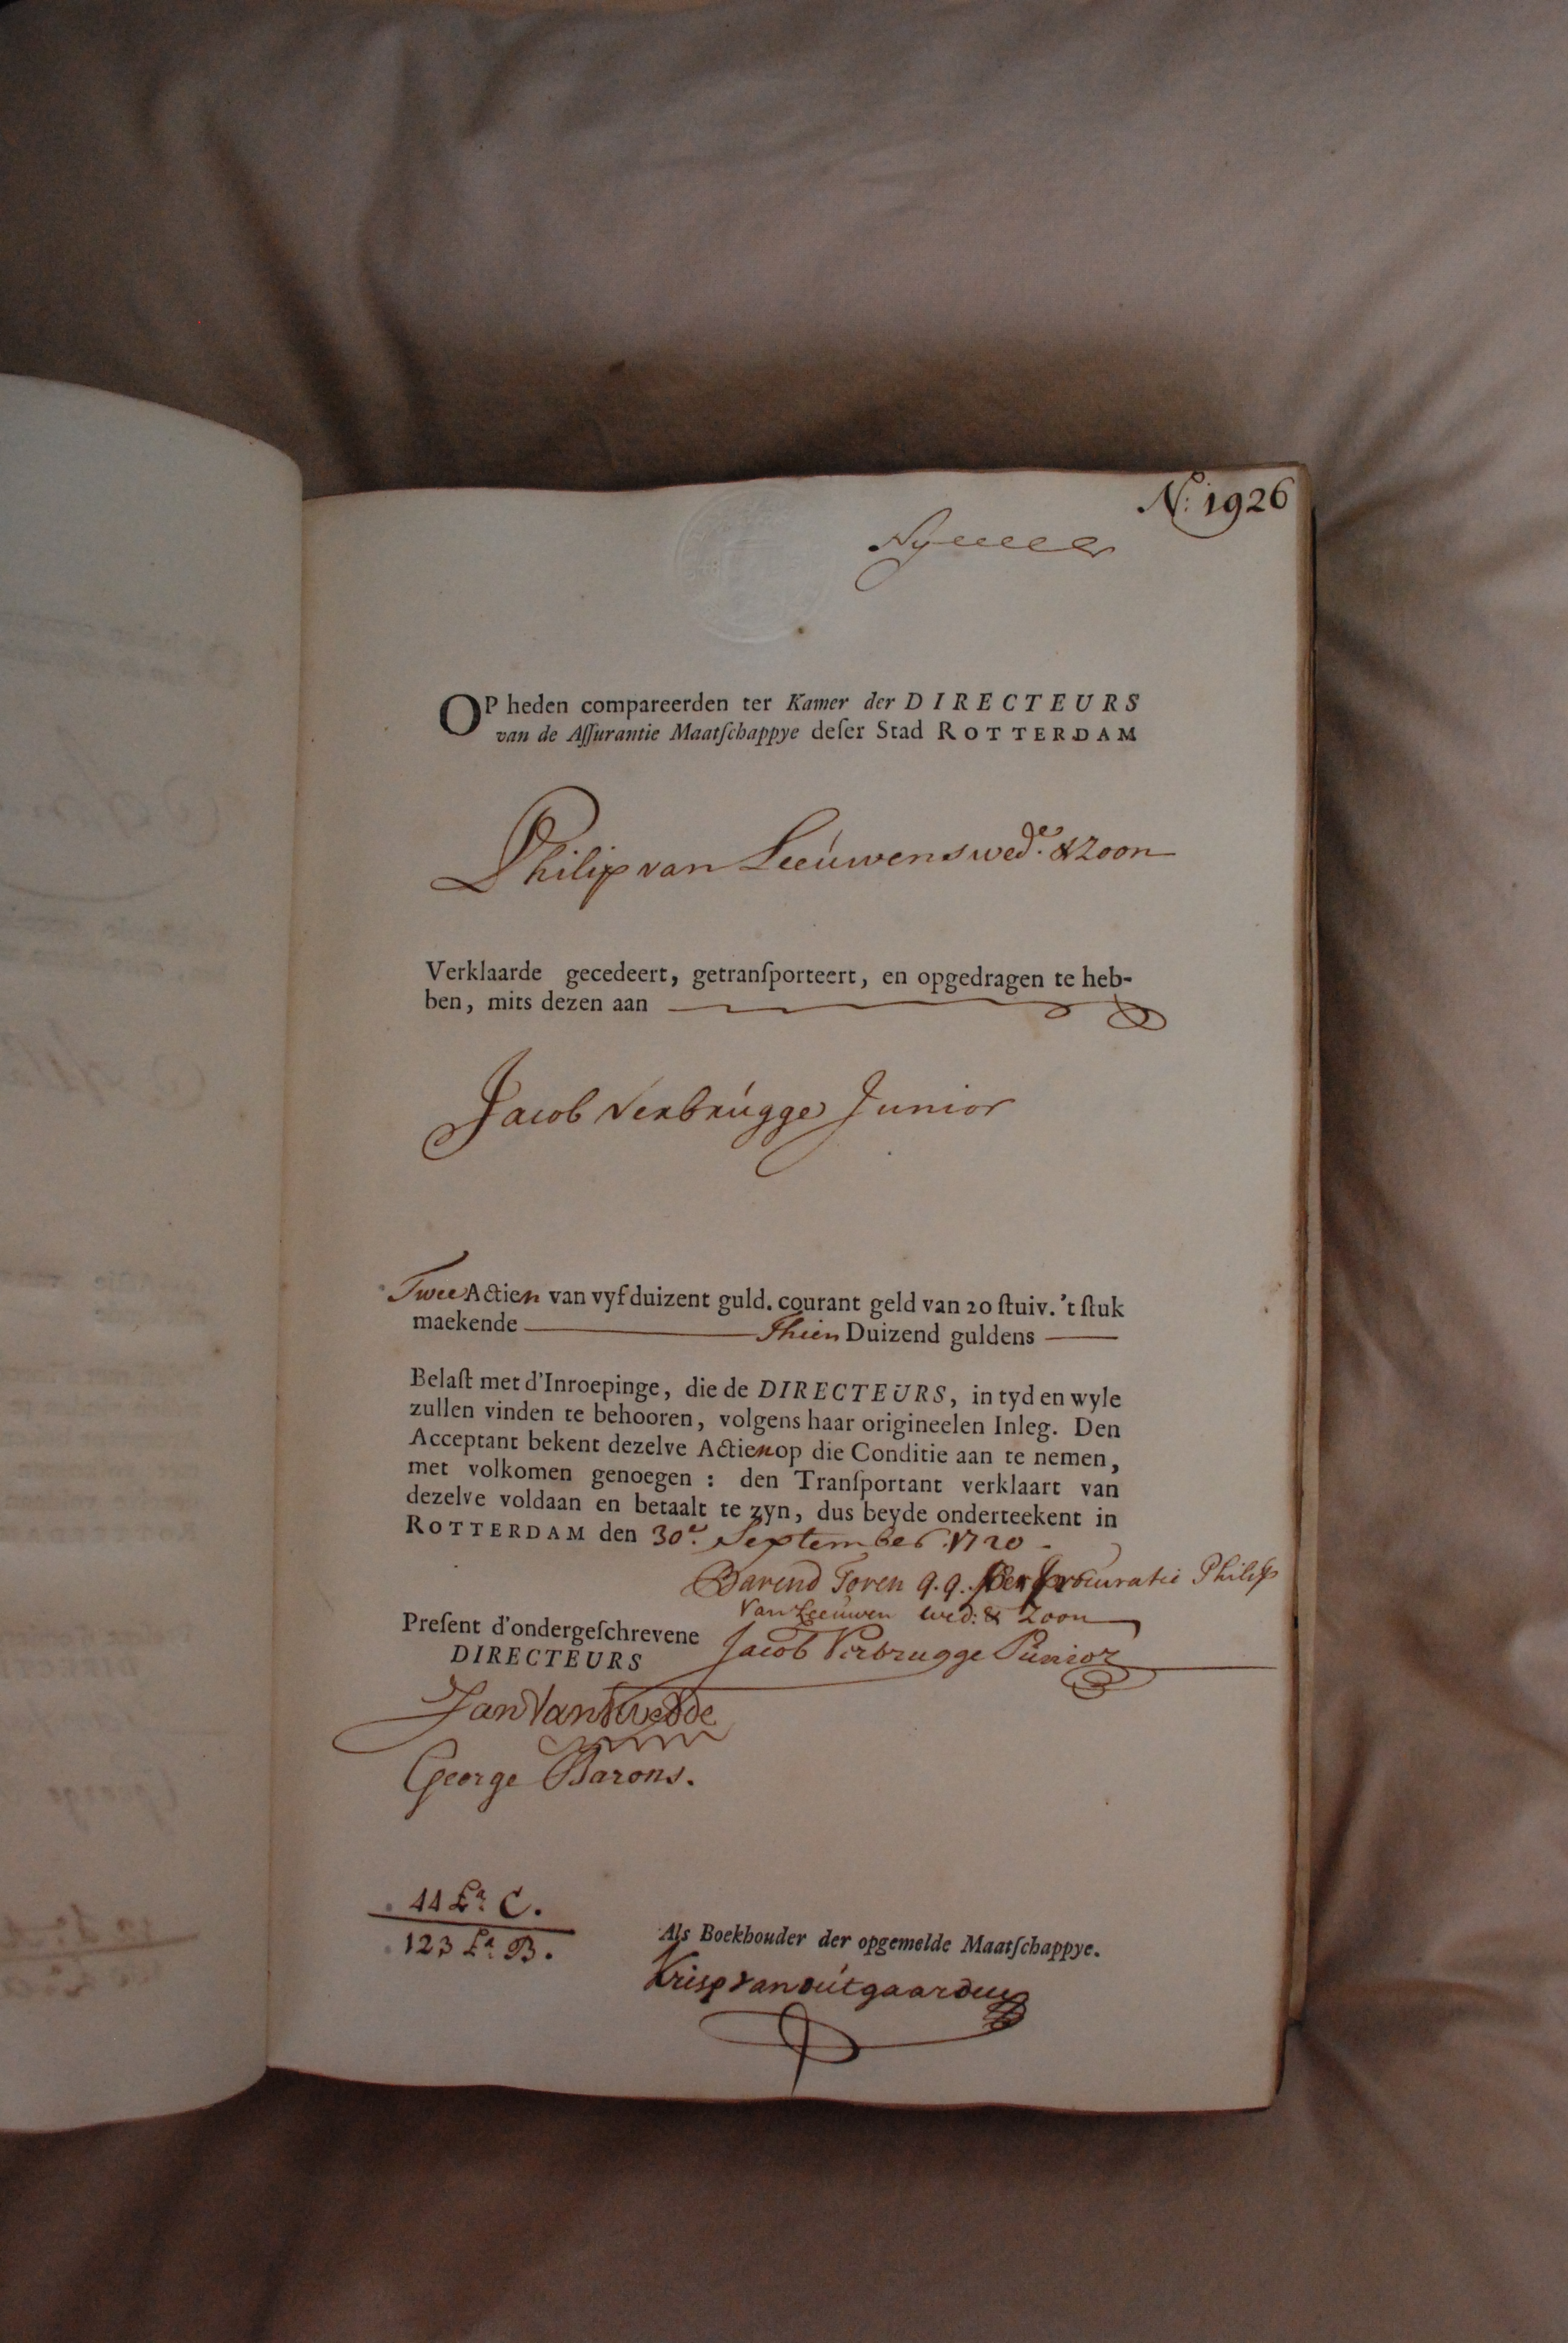 N.º 1926
OP heden compareerden ter Kamer der DIRECTEURS
van de Aſſurantie Maatſchappye deſer Stad ROTTERDAM
Philip van Leeúwens wed.e & Zoon
Verklaarde gecedeert, getranſporteert, en opgedragen te heb-
ben, mits dezen aan
Jacob Verbrúgge Junior
Twee Actien van vyfduizent guld. courant geld van 20 ſtuiv. 't ſtuk
maekende Thien Duizend guldens
Belaſt met d'Inroepinge, die de DIRECTEURS, in tyd en wyle
zullen vinden te behooren, volgens haar origineelen Inleg. Den
Acceptant bekent dezelve Actien op die Conditie aan te nemen,
met volkomen genoegen : den Tranſportant verklaart van
dezelve voldaan en betaalt te zyn, dus beyde onderteekent in
ROTTERDAM den 30.e September 1720
Barend Toren q.q. per procuratie Philip
van Leeuwen wed: & Zoon
Preſent d'ondergeſchrevene
DIRECTEURS
Jacob Verbrugge Junior
Jan Van
George Barons.
44 L.a C.
123 L.a B.
Als Boekhouder der opgemelde Maatſchappye.
Krisp van oútgaarden